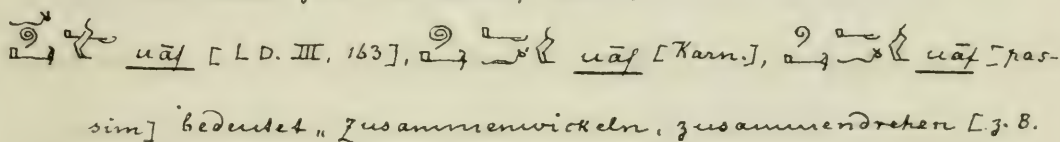 uāf [L D. III, 163], uāf [Karn.], uāf [pas-
sim] bedeutet „zusammenwickeln, zusammendrehen [z. B.